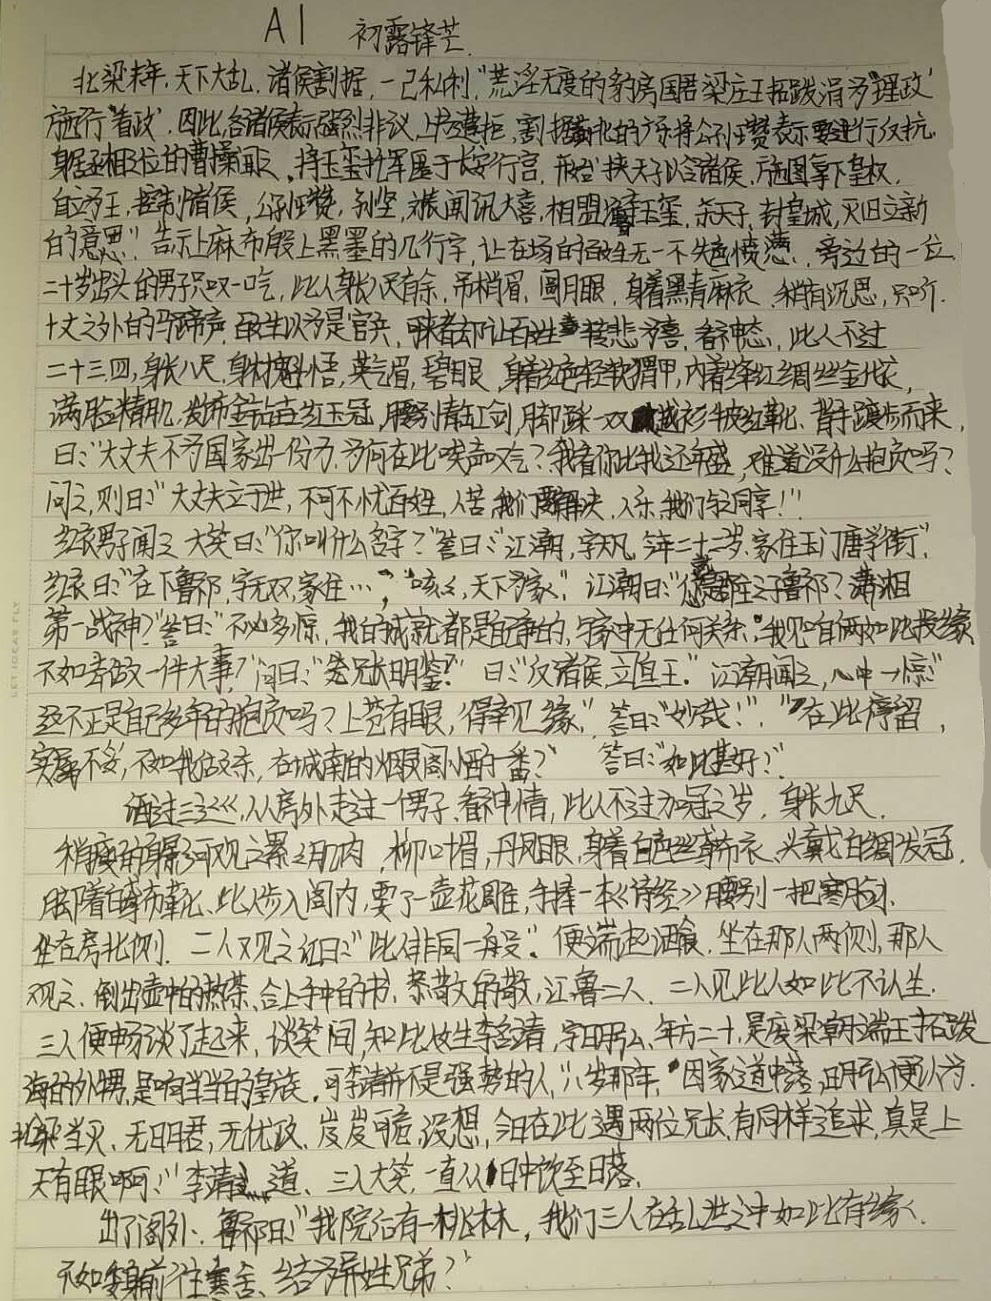 A1 初露锋芒.
北梁末年,天下大乱,诸侯割据,一己私利,"荒淫无度的豹房国君梁庄王拓跋涓为"理政"
施行"首政",因此,各诸侯表示强烈非议,上书遭拒,割据北的广东将公孙瓒表示要进行反抗.
身居丞相之位的曹操闻之,将玉玺扎军匿于长安行宫,形登挟天子以令诸侯,施图拿下皇权,
自立为王,控制诸侯,公孙瓒,孙坚,袁闻讯大喜,相盟夺玉玺,杀天子,封皇城,灭旧立新
的意思"!告示上麻布般上黑墨的几行字,让在场的百姓无一不失色愤懑,旁边的一位
二十岁出头的男子只叹一吃,此人身长八尺有余,吊梢眉,圆月眼,身着黑青麻衣,稍有沉思,只听
十丈之外的马蹄声,百姓以为是官兵,可来者却让百姓转悲为喜,看神态,此人不过
二十三四,身长八尺,身材魁梧,英气眉,碧月眼,身着红色轻软猬甲,内着绛红绸丝金化衣,
满脸精肌,发布金钻吉红玉冠,腰别情缸剑,脚踩一双衫皮红靴,背手踱步而来,
曰:"大丈夫不为国家出一份力,为何在此唉声叹气?我看你比我还年盛,难道没什么抱负吗?
问之,则曰:"大丈夫立于世,不可不忧百姓,人苦我们要解决,人乐我们字同享!"
红衣男子闻之大笑曰:"你叫什么名字?"答曰:"江潮,字天凡,今年二十二岁,家住玉门唐学街",
红衣曰:"在下鲁祁,字无双,家住…,"咳々,天下为家",江潮曰:"您就是那庄子鲁祁?潇湘
第一战神?"答曰:"不必多惊,我的成就都是自己争的,与家中无任何关系,"我见咱俩如此投缘
不如去做一件大事?"问曰:"先兄长明鉴?"曰:"反诸侯,立自王."江潮闻之,心中一惊:"
这不正是自己多年的抱负吗?上苍有眼,得幸见缘",答曰:"妙哉!","在此停留,
实属不多,不如我估又亲,在城南的烟暇阁小酌一番?"答曰:"如此甚好?"
酒过三巡,从房外走过一个男子,看神情,此人不过加冠之岁,身长九尺,
稍瘦的身影可观之累之肌肉,柳叶眉,丹凤眼,身着白色丝绸布衣,头戴白绸发冠,
脚着白绸布靴,此人步入阁内,要了一壶花雕,手捧一本《诗经》腰别一把寒月剑,
坐在房北侧.二人观之证曰:"此人非同一般",便端起酒食,坐在那人两侧,那人
观之,倒出壶中的热茶,合上手中的书,恭敬的敬,江鲁二人,二人见此人如此不认生,
三人便畅谈了起来,谈笑间,知此人姓李名清,字明弘,年方二十,是废梁朝端王拓跋
海的外甥,是响当当的皇族,可李清并不是强势的人,"八岁那年,因家道中落,明弘便认为,
北梁当灭,无明君,无优政,岌岌可危,没想,今日在此遇两位兄长,有同样追求,真是上
天有眼啊!"李清道,三人大笑,一直从日中饮至日落,
出了阁外,鲁祁曰:"我院后有一桃林,我们三人在乱世之中如此有缘,
不如移身前往寒舍,结为异姓兄弟?"